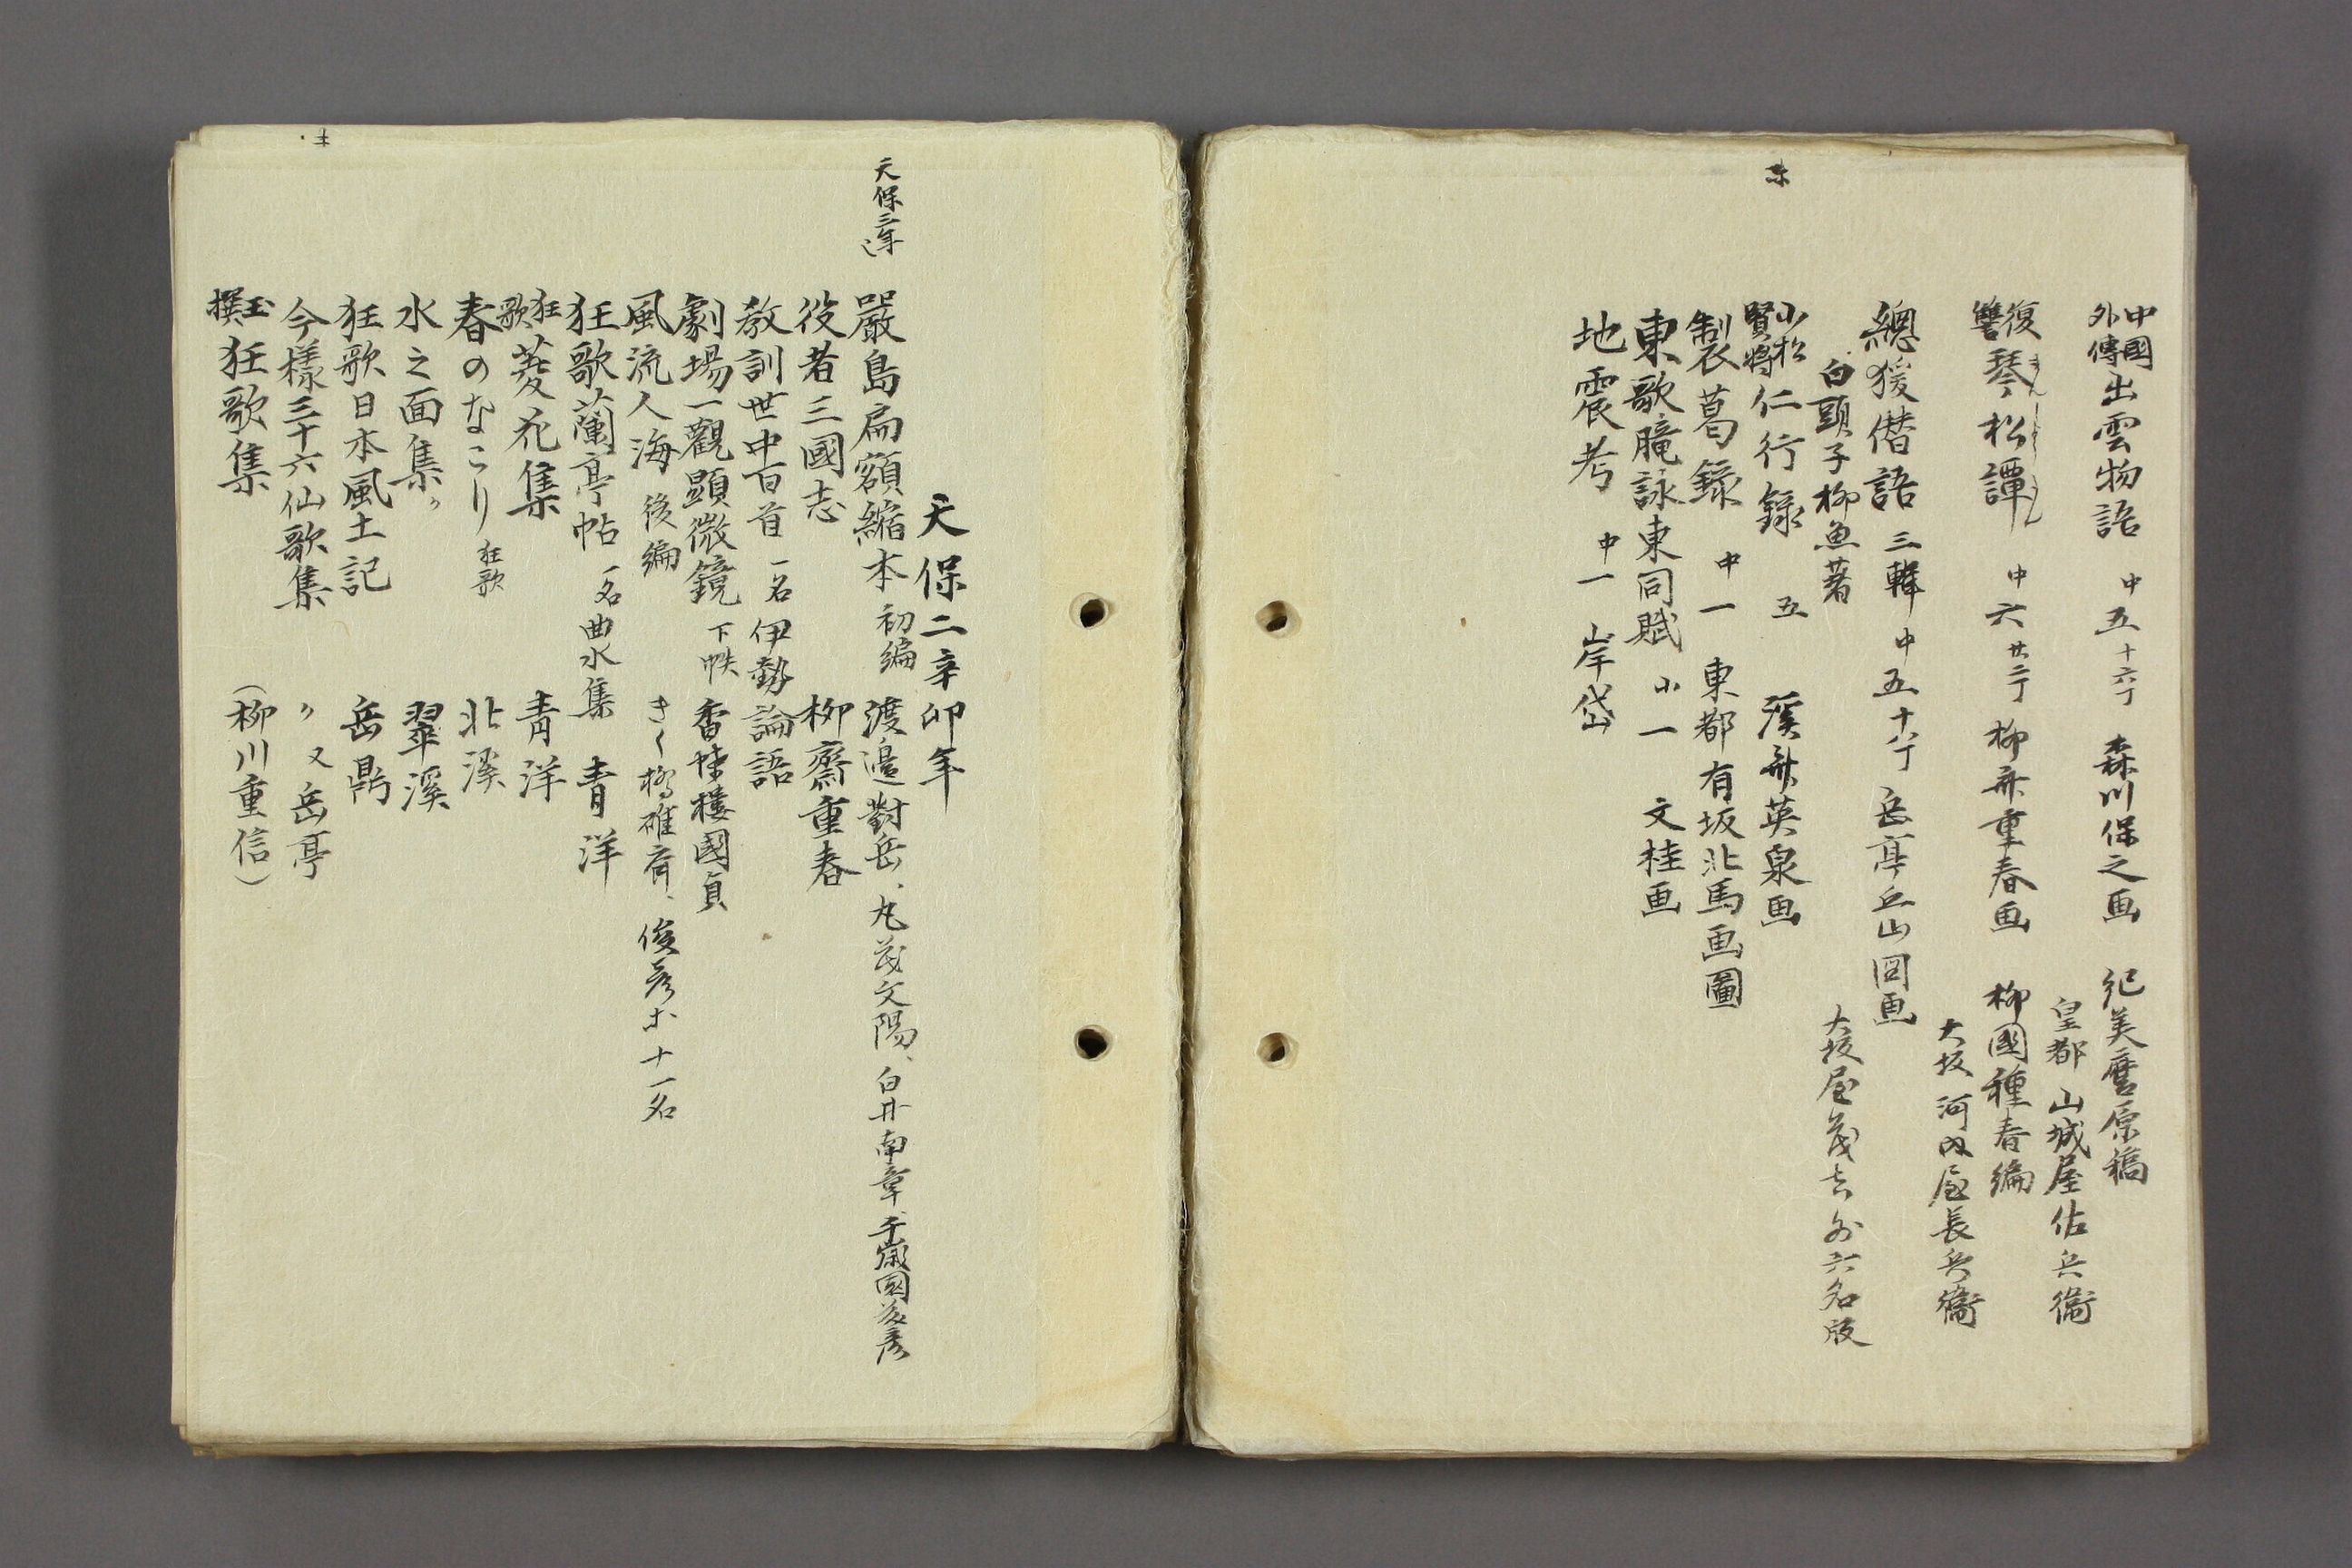 中國外傳出雲物語 中五 十六丁 森川保之画 紀美麿原稿
皇都 山城屋佐兵衞
復讐琴松譚 中六 廿二丁 柳斎重春画 柳國種春編
大坂 河内屋長兵衞
總猨僣語 三輯 中五 十六丁 岳亭丘山図画
白頭子柳魚著
大坂屋茂吉外六名版
小松賢將仁行録 五 溪斎英泉画
製葛録 中一 東都有坂北馬画圖
東歌朧詠東同賦 小一 文桂画
地震考 中一 岸岱
天保二辛卯年
天保三年迄
嚴島扁額縮本 初編 渡邉對岳、丸茂文陽、白井南章、千歳園茂彦
役者三國志 柳齋重春
教訓世中百首 一名 伊勢論語
劇場一觀顕微鏡 下帙 香蝶樓國貞
風流人海 後編 きく楊雄斎、俊彦ホ十一名
狂歌蘭亭帖 一名 曲水集 青洋
狂歌菱花集 青洋
春のなこり 狂歌 北溪
水之面集 〃 翠溪
狂歌日本風土記 岳鼎
今様三十六仙歌集 〃又岳亭
玉撰狂歌集 (柳川重信)